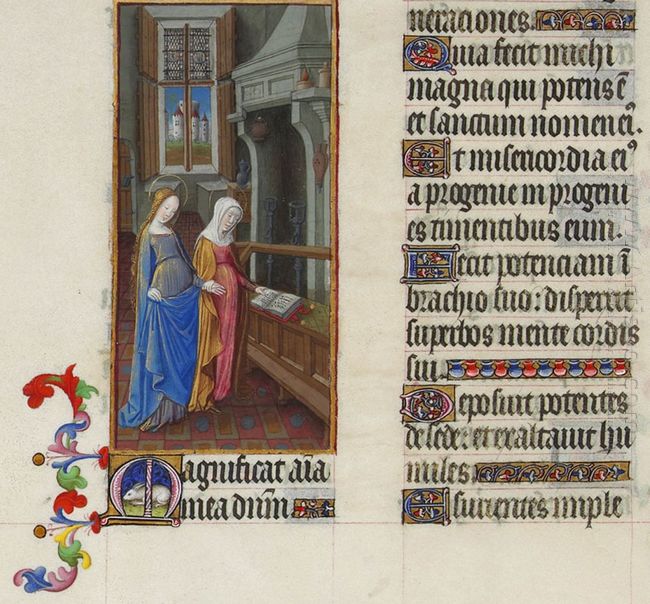 Magnificat aīa
mea dnm̄.
neraciones.
Quia fecit michi
magna qui potens ē
et sanctum nomen eiꝰ.
Et misericordia eiꝰ
a progenie in progeni
es timentibus eum.
Fecit potenciam ī
brachio suo: dispersit
superbos mente cordis
sui
Deposuit potentes
de sede: et exaltauit hu
miles.
Esurientes imple